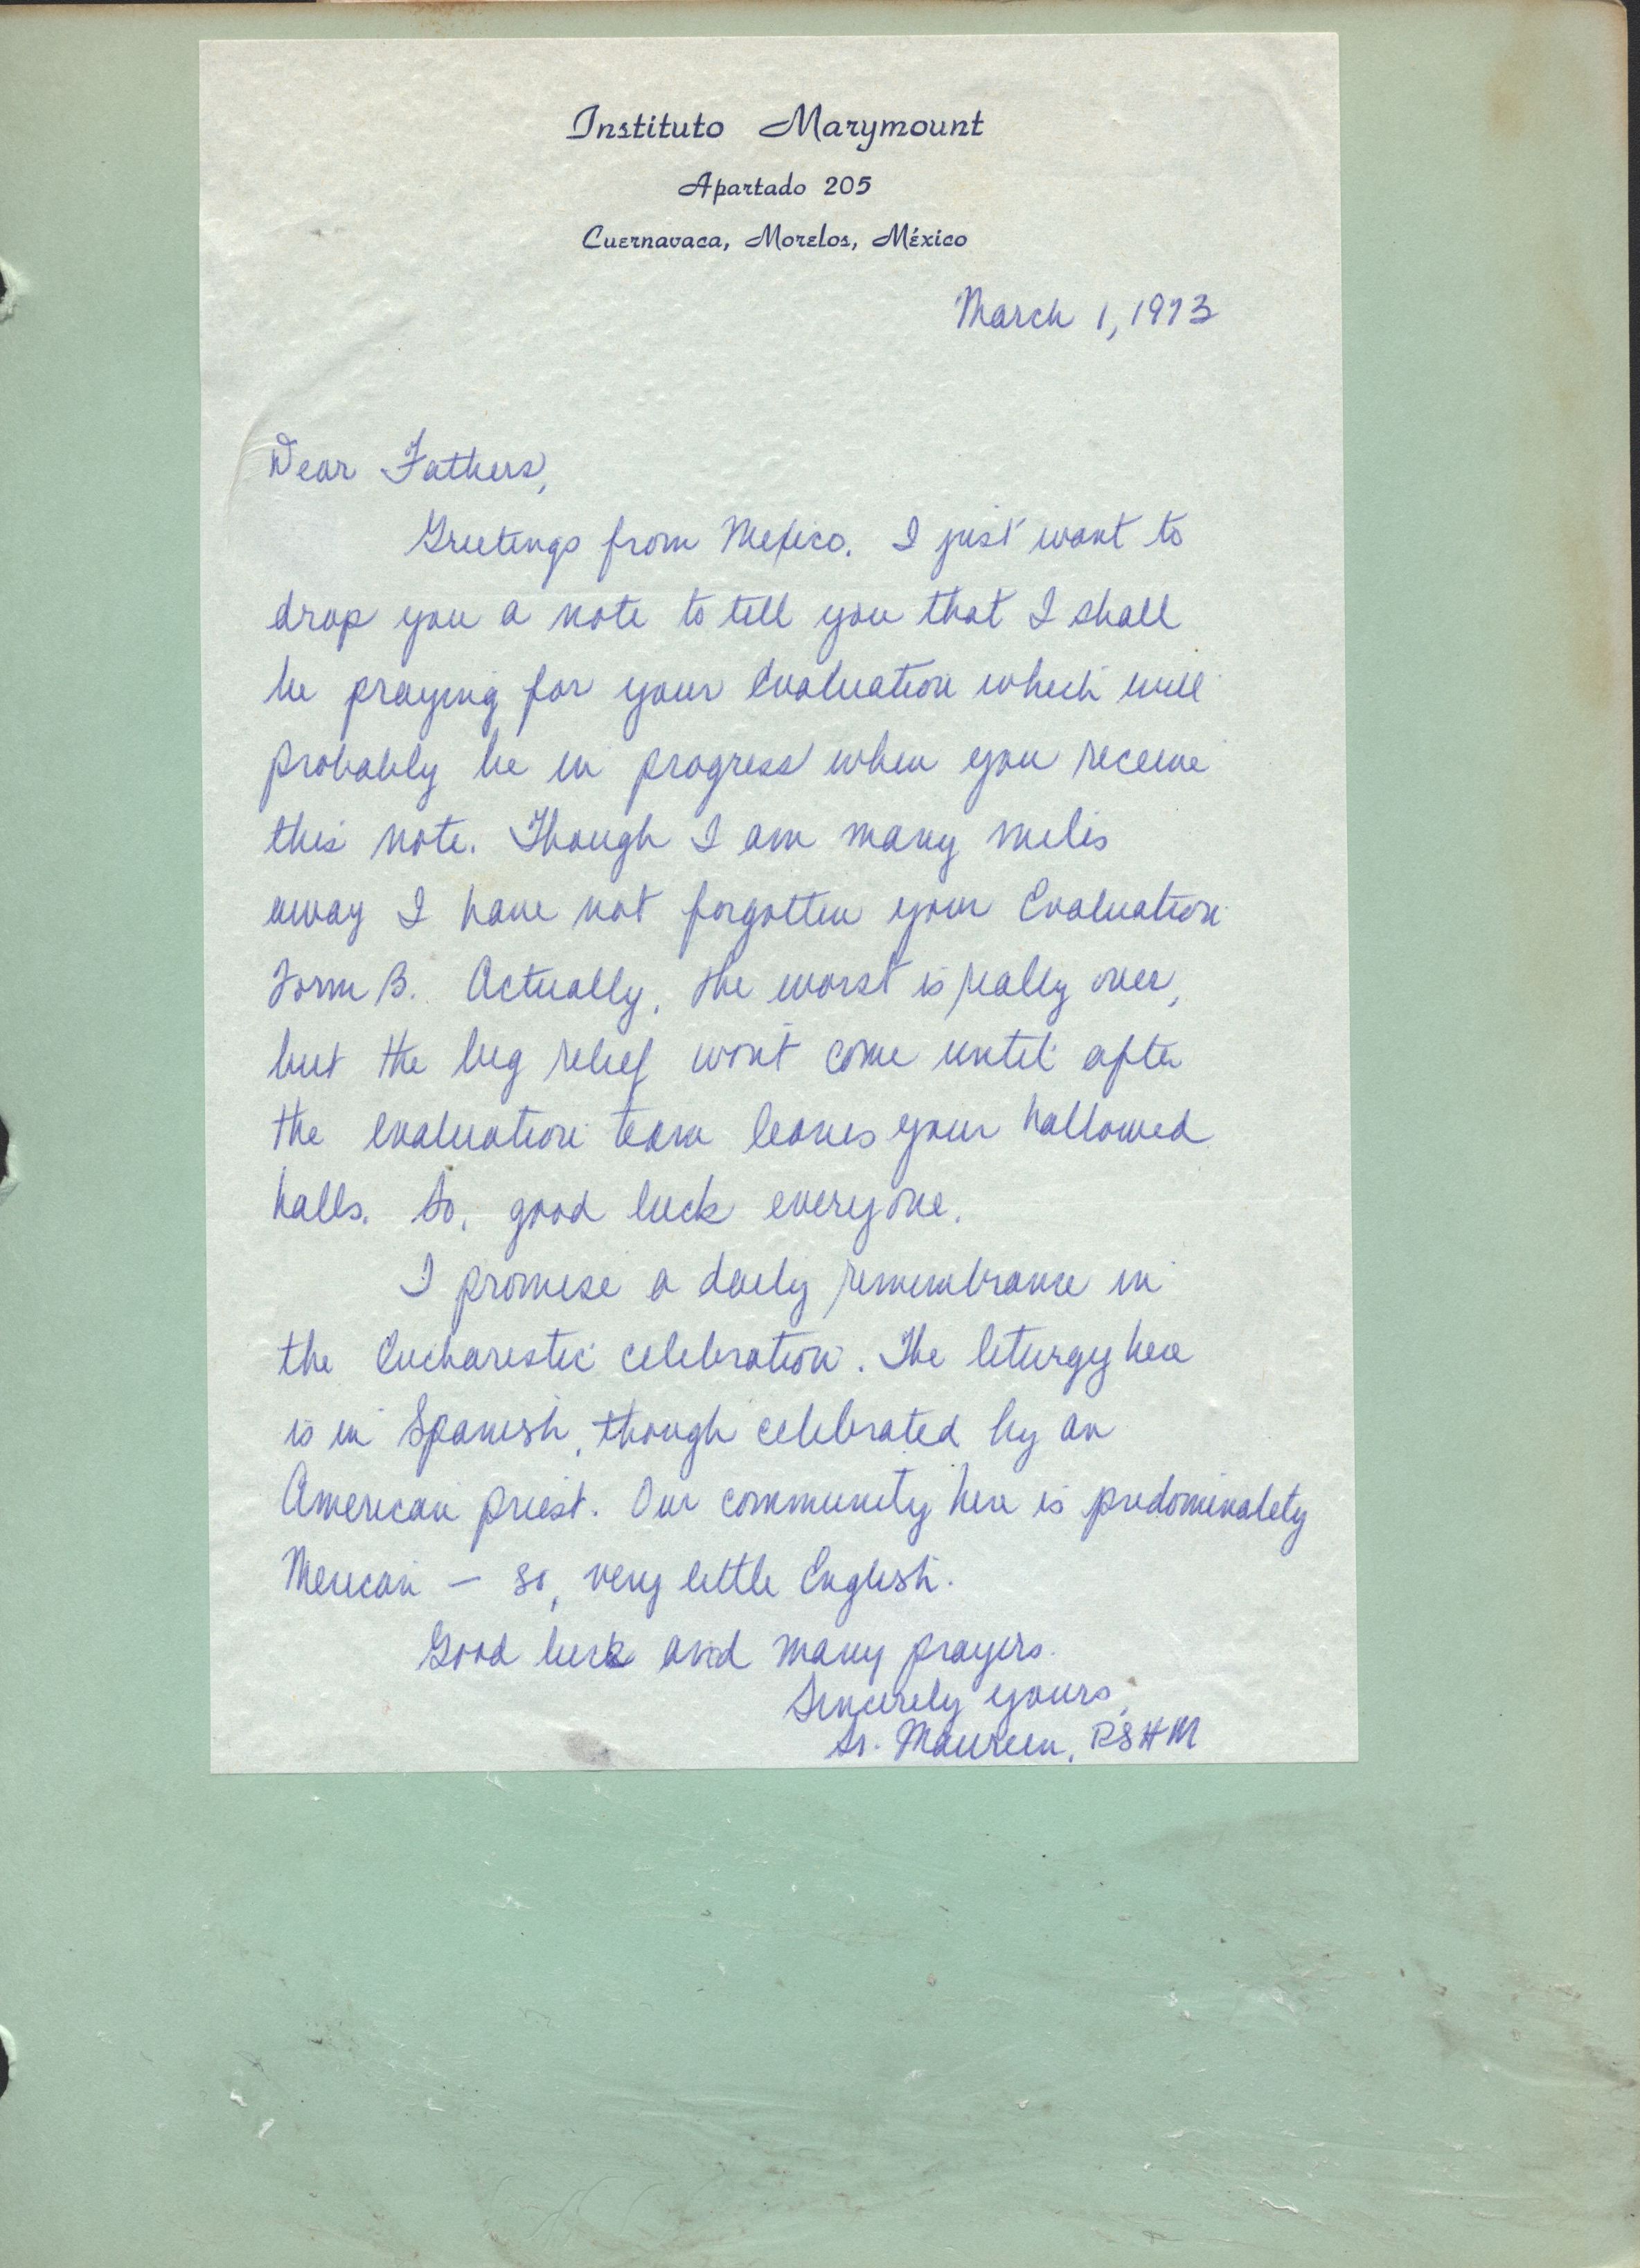 Instituto Marymount
Apartado 205
Cuernavaca, Morelos, México
March 1, 1973
Dear Fathers,
Greetings from Mexico. I just want to
drop you a note to tell you that I shall
be praying for your Evaluation which will
probably be in progress when you receive
this note. Though I am many miles
away I have not forgotten your Evaluation
Form B. Actually, the worst is really over,
but the big relief won't come until after
the evaluation team leaves your hallowed
halls. So, good luck everyone.
I promise a daily remembrance in
the Eucharistic celebration. The liturgy here
is in Spanish, though celebrated by an
American priest. Our community here is predominately
Mexican — so, very little English.
Good luck and many prayers.
Sincerely yours,
Sr. Maureen, RSHM